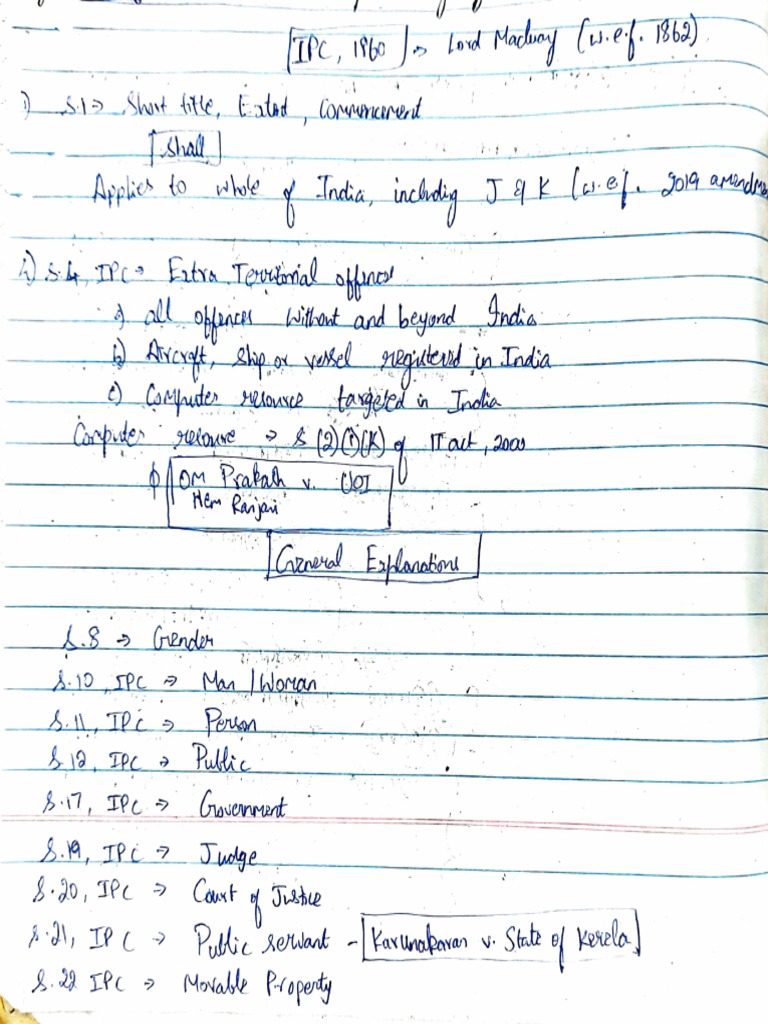 [IPC, 1860] → Lord Macluay (w.e.f. 1862)
i) S.1 → Short title, Extend, Commencement
[Shall]
Applies to whole of India, including J & K (w.e.f. 2019 amendme
ii) S.4, IPC → Extra Territorial offences
a) all offences without and beyond India
b) Aircraft, ship or vessel registered in India
c) Computer resource targeted in India
Computer resource → S (2)(1)(K) of IT act, 2000
Om Prakash v. UOI
Hem Ranjani
General Explanations
S.8 → Gender
S.10, IPC → Man / Woman
S.11, IPC → Person
S.12, IPC → Public
S.17, IPC → Government
S.19, IPC → Judge
S.20, IPC → Court of Justice
S.21, IPC → Public servant - [Karunakaran v. State of Kerela]
S.22 IPC → Movable Property